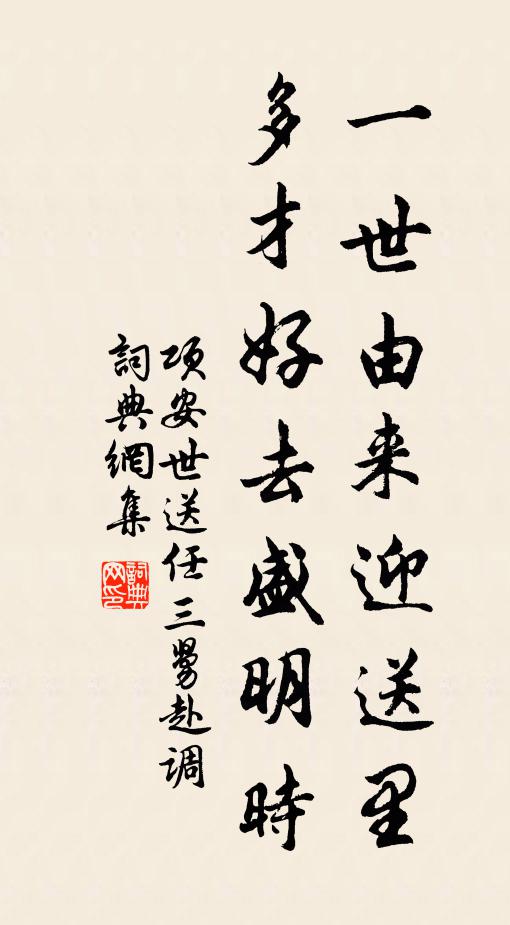 一世由来迎送里
多才好去盛明時
項安世送任三舅赴调
詞典網集
詞典网印